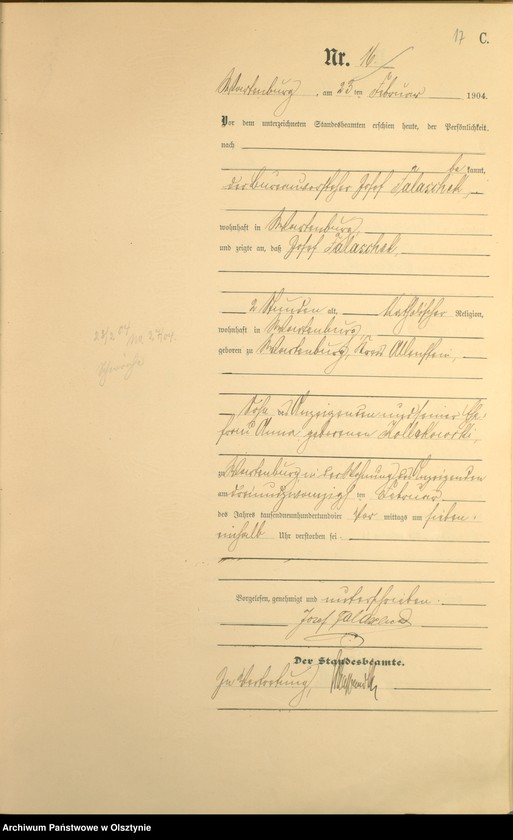 17 C.
Nr. 16.
Wartenburg, am 23 ten Februar 1904.
Vor dem unterzeichneten Standesbeamten erschien heute, der Persönlichkeit
nach
be kannt,
der Bureauvorsteher Josef Salaschek,
wohnhaft in Wartenburg,
und zeigte an, daß Josef Salaschek,
2 Stunden alt, katholischer Religion,
wohnhaft in Wartenburg,
geboren zu Wartenburg, Kreis Allenstein,
Sohn des Anzeigenden und seiner Ehe-
frau Anna geborenen
zu Wartenburg in der Wohnung des Anzeigenden
am dreiundzwanzigsten Februar
des Jahres tausendneunhundertundvier Vor mittags um sieben-
einhalb Uhr verstorben sei
Vorgelesen, genehmigt und unterschrieben.
Josef Salaschek
Der Standesbeamte.
In Vertretung,
Archiwum Państwowe w Olsztynie